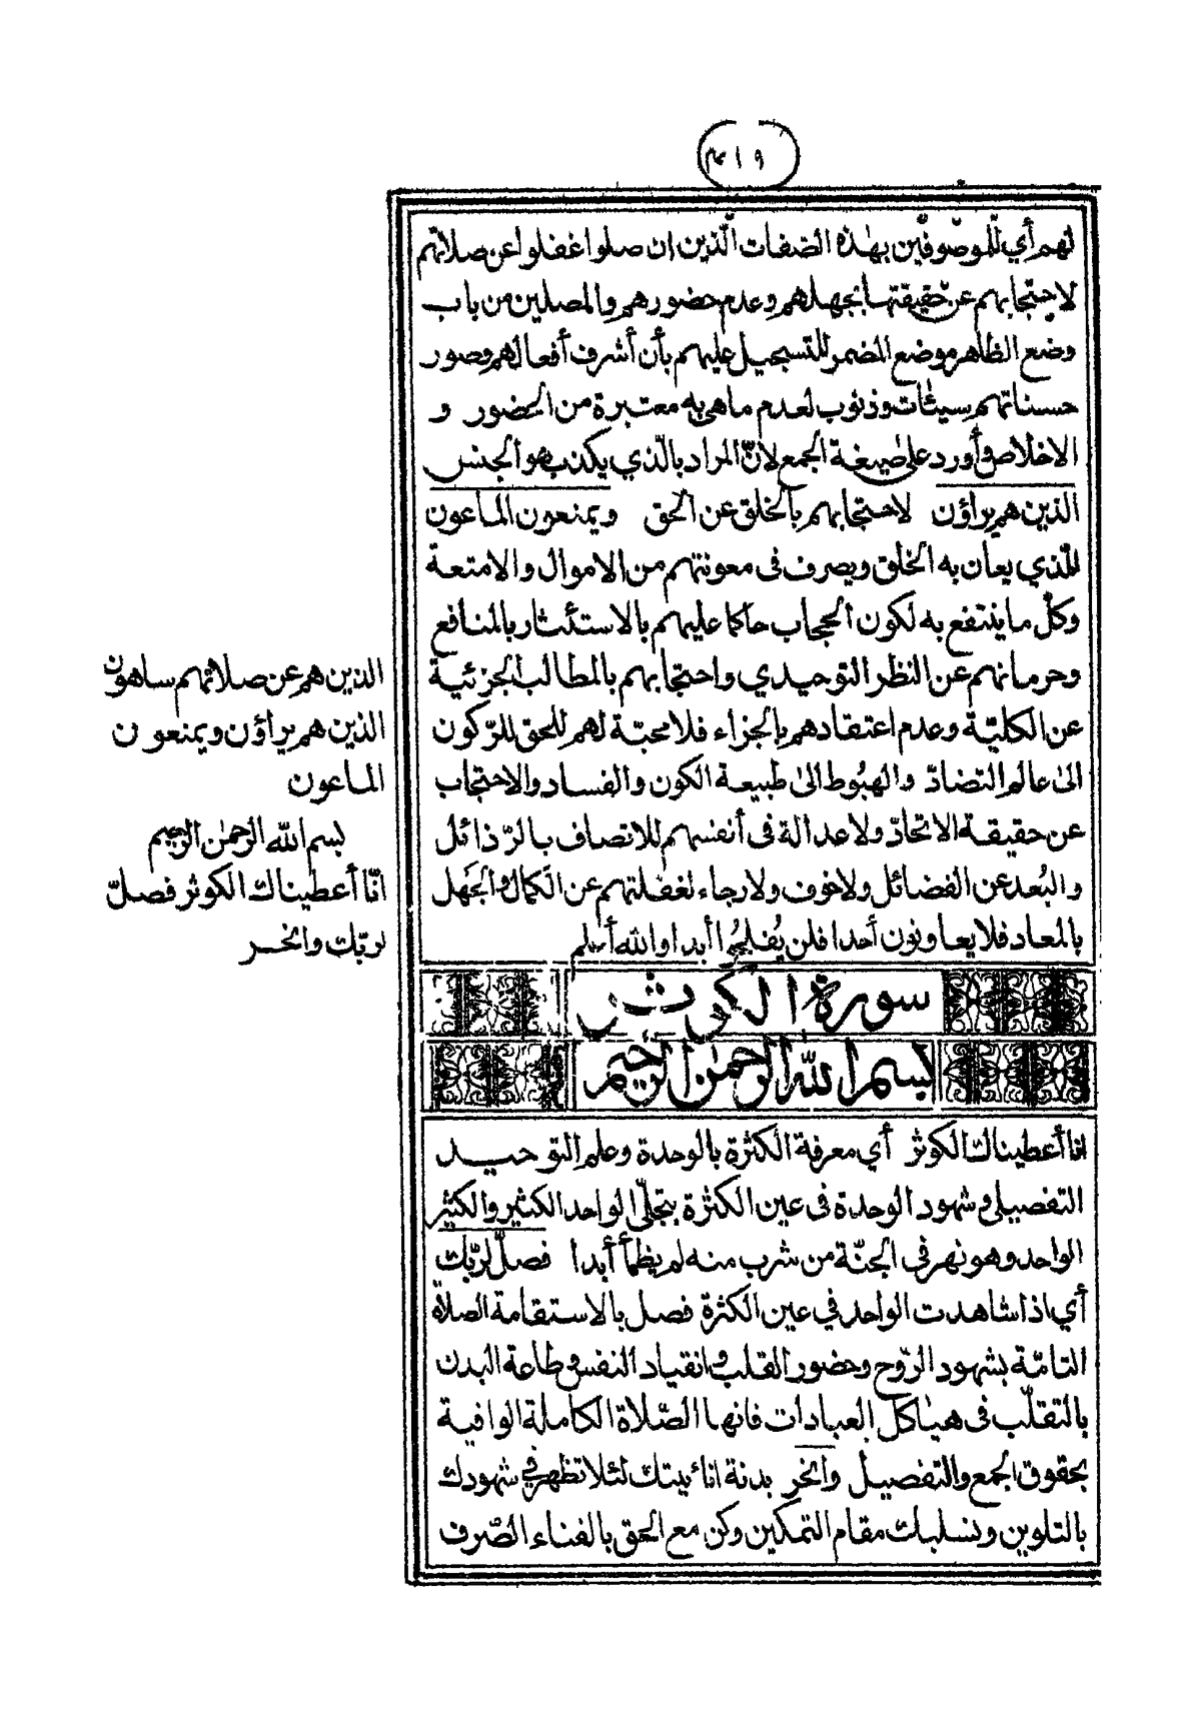 لهم أي للموصوفين بهذه الصفات الّذين ان صلوا غفلوا عن صلاتهم
لاحتجابهم عن حقيقتها بجهلهم وعدم حضورهم والمصلين من باب
وضع الظاهر موضع المضمر للتسجيل عليهم بأن أشرف أفعالهم وصور
حسناتهم سيئات وذنوب لعدم ما هى به معتبرة من الحضور و
الاخلاص وأورد على صيغة الجمع لانّ المراد بالّذي يكذب هو الجنس
الذين هم يراؤن لاحتجابهم بالخلق عن الحق ويمنعون الماعون
للّذي يعان به الخلق ويصرف فى معونتهم من الاموال والامتعة
وكلّ ما ينتفع به لكون الحجاب حاكما عليهم بالاستئثار بالمنافع
وحرمانهم عن النظر التوحيدي واحتجابهم بالمطالب الجزئية
عن الكليّة وعدم اعتقادهم بالجزاء فلا محبّة لهم للحق للرّكون
الىٰ عالم التضادّ والهبُوط الىٰ طبيعة الكون والفساد والاحتجاب
عن حقيقة الاتحادّ ولا عدالة فى أنفسهم للاتصاف بالرّذائل
والبُعد عن الفضائل ولا خوف ولا رجاء لغفلتهم عن الكمال والجَهل
بالمعاد فلا يعاونون أحدا فلن يُفلحُوا أبدا والله أعلم
الذين هم عن صلاتهم ساهون
الذين هم يراؤن ويمنعون
الماعون
بسم الله الرحمٰن الرّحيم
انّا أعطيناك الكوثر فصلّ
لربّك وانحر
سورة الكوثر
بسم الله الرحمٰن الرحيم
انا أعطيناك الكوثر أي معرفة الكثرة بالوحدة وعلم التوحيد
التفصيلي وشهود الوحدة فى عين الكثرة بتجلّي الواحد الكثير والكثير
الواحد وهو نهر في الجنّة من شرب منه لم يظمأ أبدا فصلّ لربّك
أي اذا شاهدت الواحد في عين الكثرة فصل بالاستقامة الصلاة
التامّة بشهود الرّوح وحضور القلب وانقياد النفس وطاعة البدن
بالتقلّب فى هياكل العبادات فانها الصّلاة الكاملة الوافية
بحقوق الجمع والتفصيل وانحر بدنة انائيتك لئلا تظهر في شهودك
بالتلوين وتسلبك مقام التمكين وكن مع الحق بالفناء الصّرف